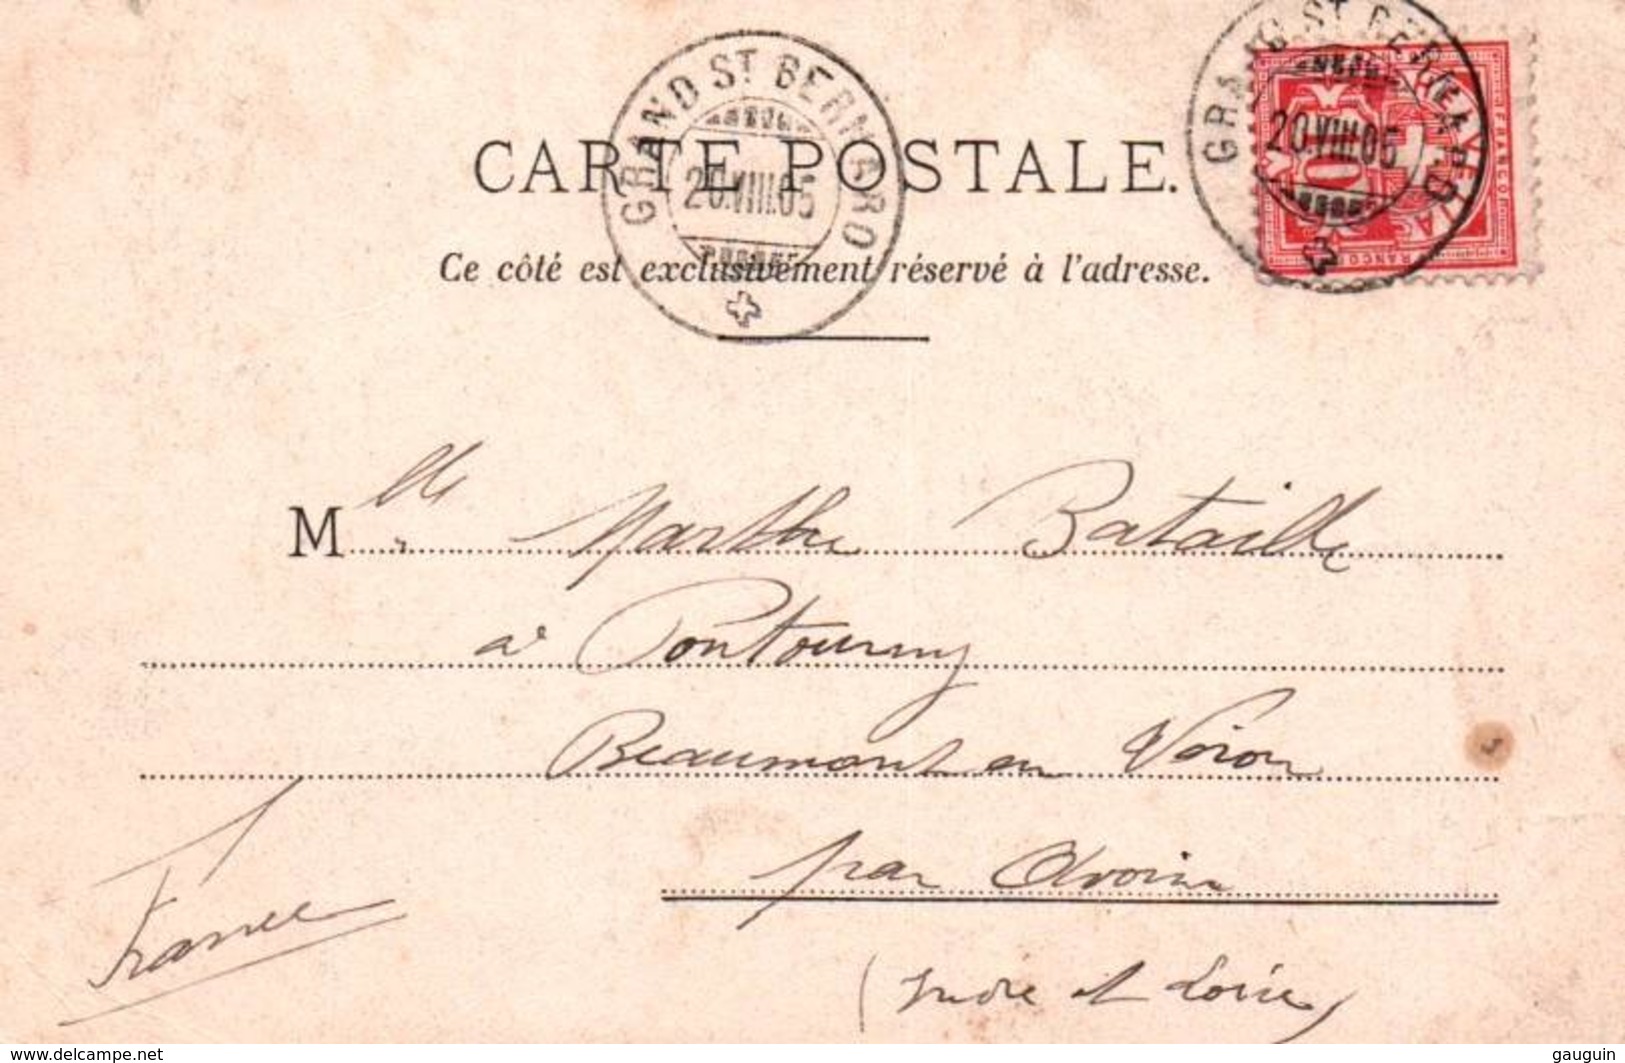 GRAND ST BERNARD
20.VIII.05
GRAND ST BERNARD
20.VIII.05
FRANCO
10
CARTE POSTALE.
Ce côté est exclusivement réservé à l'adresse.
Mlle Marthe Bataille
à Pontourny
Beaumont en Véron
par Avoine
France
(Indre et Loire)
www.delcampe.net
gauguin